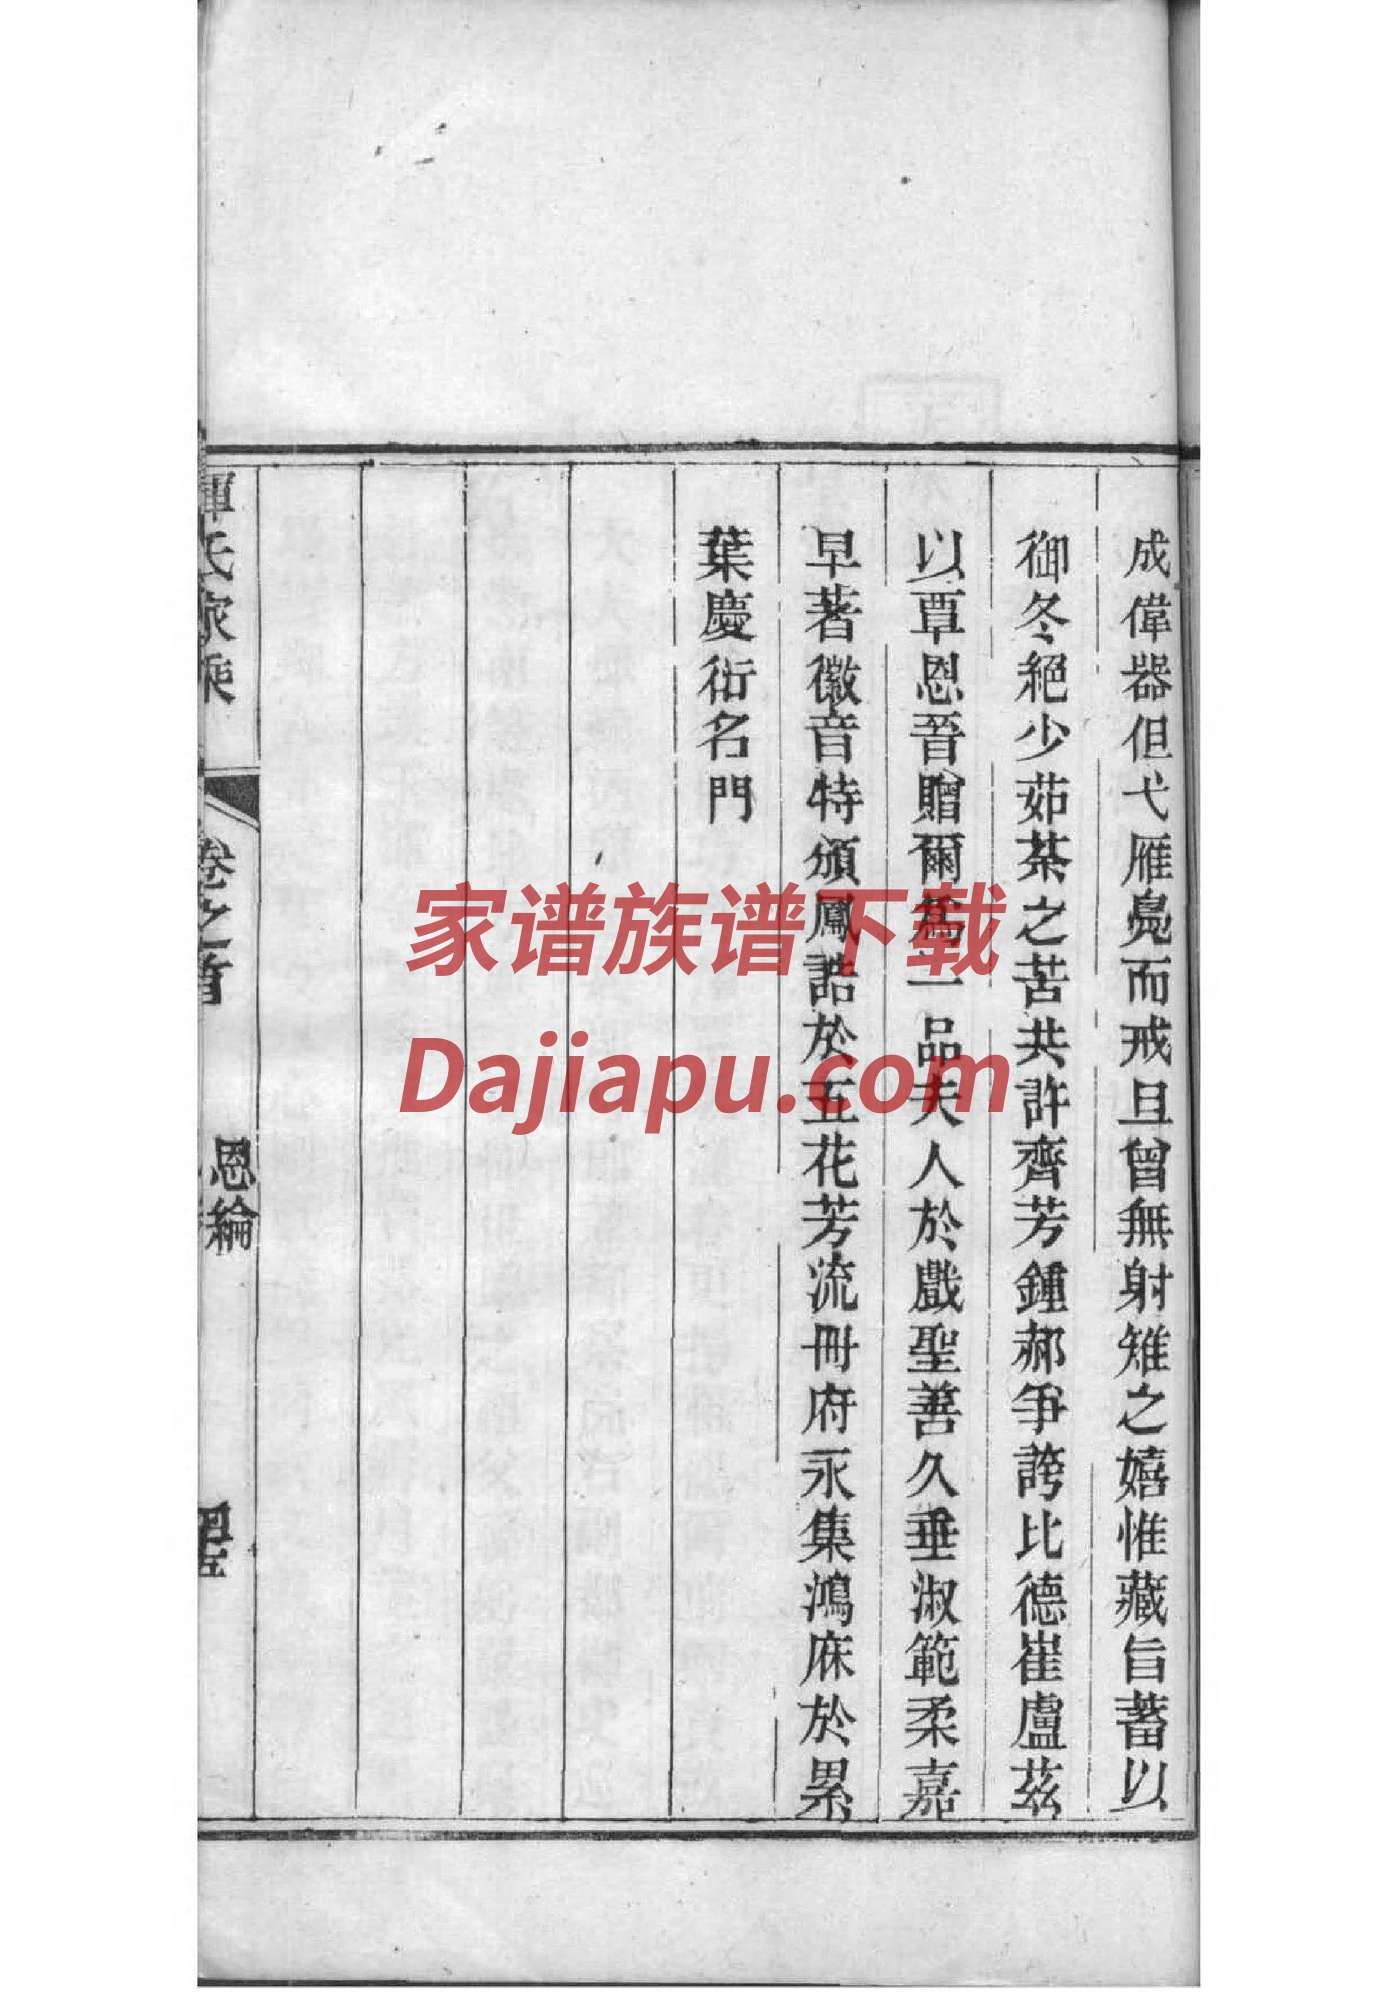 成偉器但弋雁鳧而戒旦曾無射雉之嬉惟藏旨蓄以
御冬絕少茹荼之苦共許齊芳鍾郝爭誇比德崔盧茲
以覃恩晉贈爾爲一品夫人於戲聖善久垂淑範柔嘉
早著徽音特頒鳳誥於五花芳流冊府永集鴻庥於累
葉慶衍名門
惲氏家乘
卷之首
恩綸
家谱族谱下载
Dajiapu.com